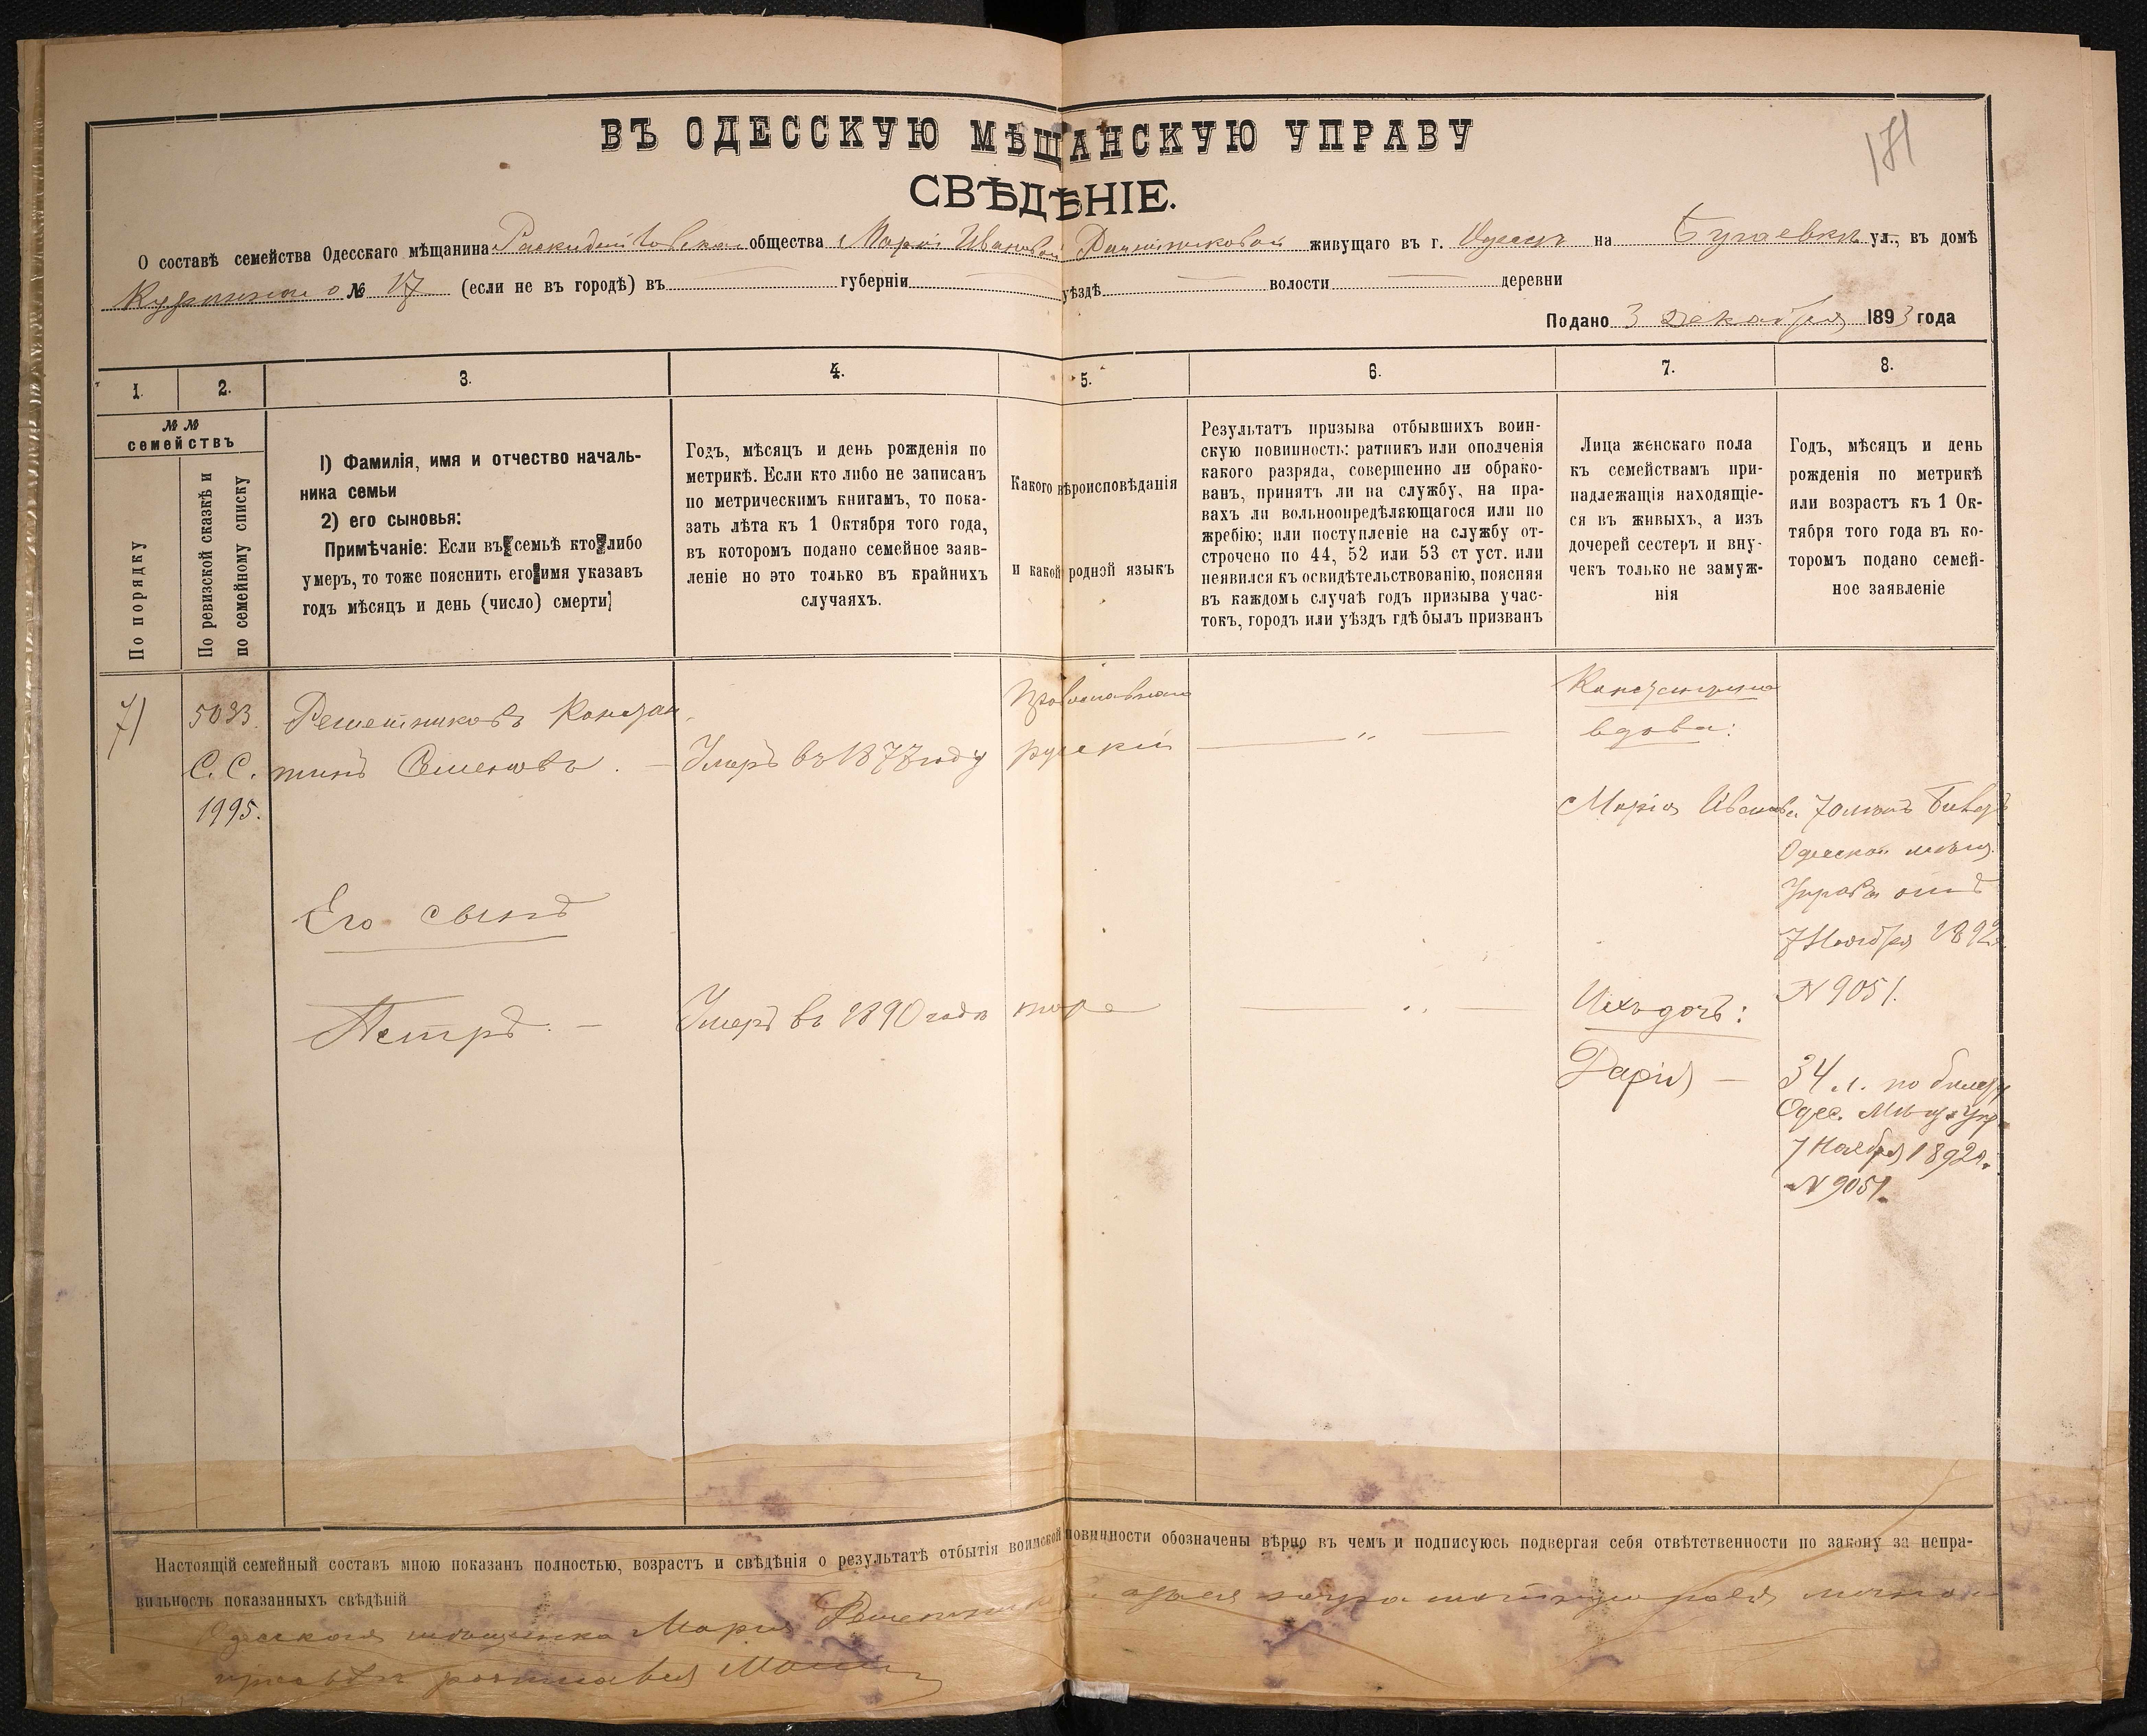 171
ВЪ ОДЕССКУЮ МѢЩАНСКУЮ УПРАВУ
СВѢДѢНІЕ.
О составѣ семейства Одесскаго мѣщанина общества Маріи Ивановой живущаго въ г. Одессѣ на Бугаевкѣ ул., въ домѣ
№ 17 (если не въ городѣ) въ губерніи уѣздѣ волости деревни
Подано 3 Декабря 1893 года
1. 2. 3. 4. 5. 6. 7. 8.
№ №
семействъ
По порядку
По ревизской сказкѣ и
по семейному списку
1) Фамилія, имя и отчество началь-
ника семьи
2) его сыновья:
Примѣчаніе: Если въ семьѣ кто либо
умеръ, то тоже пояснить его имя указавъ
годъ мѣсяцъ и день (число) смерти
Годъ, мѣсяцъ и день рожденія по
метрикѣ. Если кто либо не записанъ
по метрическимъ книгамъ, то пока-
зать лѣта къ 1 Октября того года,
въ которомъ подано семейное заяв-
леніе но это только въ крайнихъ
случаяхъ.
Какого вѣроисповѣданія
и какой родной языкъ
Результатъ призыва отбывшихъ воин-
скую повинность: ратникъ или ополченія
какого разряда, совершенно ли обрако-
ванъ, принятъ ли на службу, на пра-
вахъ ли вольноопредѣляющагося или по
жребію; или поступленіе на службу от-
строчено по 44, 52 или 53 ст уст. или
неявился къ освидѣтельствованію, поясняя
въ каждомъ случаѣ годъ призыва учас-
токъ, городъ или уѣздъ гдѣ былъ призванъ
Лица женскаго пола
къ семействамъ при-
надлежащія находящіе-
ся въ живыхъ, а изъ
дочерей сестеръ и вну-
чекъ только не замуж-
нія
Годъ, мѣсяцъ и день
рожденія по метрикѣ
или возрастъ къ 1 Ок-
тября того года въ ко-
торомъ подано семей-
ное заявленіе
71
5033.
С. С.
1995.
Решетниковъ Констан
тинъ Семеновъ. —
Умеръ въ 1877 году
Православнаго
русскій
— " —
вдова:
Марія Иванова
70
Одесской
Управы отъ
7 Ноября 1892
N 9051.
Его сынъ
Петръ. —
Умеръ въ 1890 году
тоже
— " —
Ихъ дочь:
Дарія —
34 л. по билету
Одес. Мѣщ. Упр.
7 Ноября 1892 г.
N 9051.
Настоящій семейный составъ мною показанъ полностью, возрастъ и свѣдѣнія о результатѣ отбытія воинской повинности обозначены вѣрно въ чемъ и подписуюсь подвергая себя отвѣтственности по закону за непра-
вильность показанныхъ свѣдѣній
Одесская мѣщанка Марія